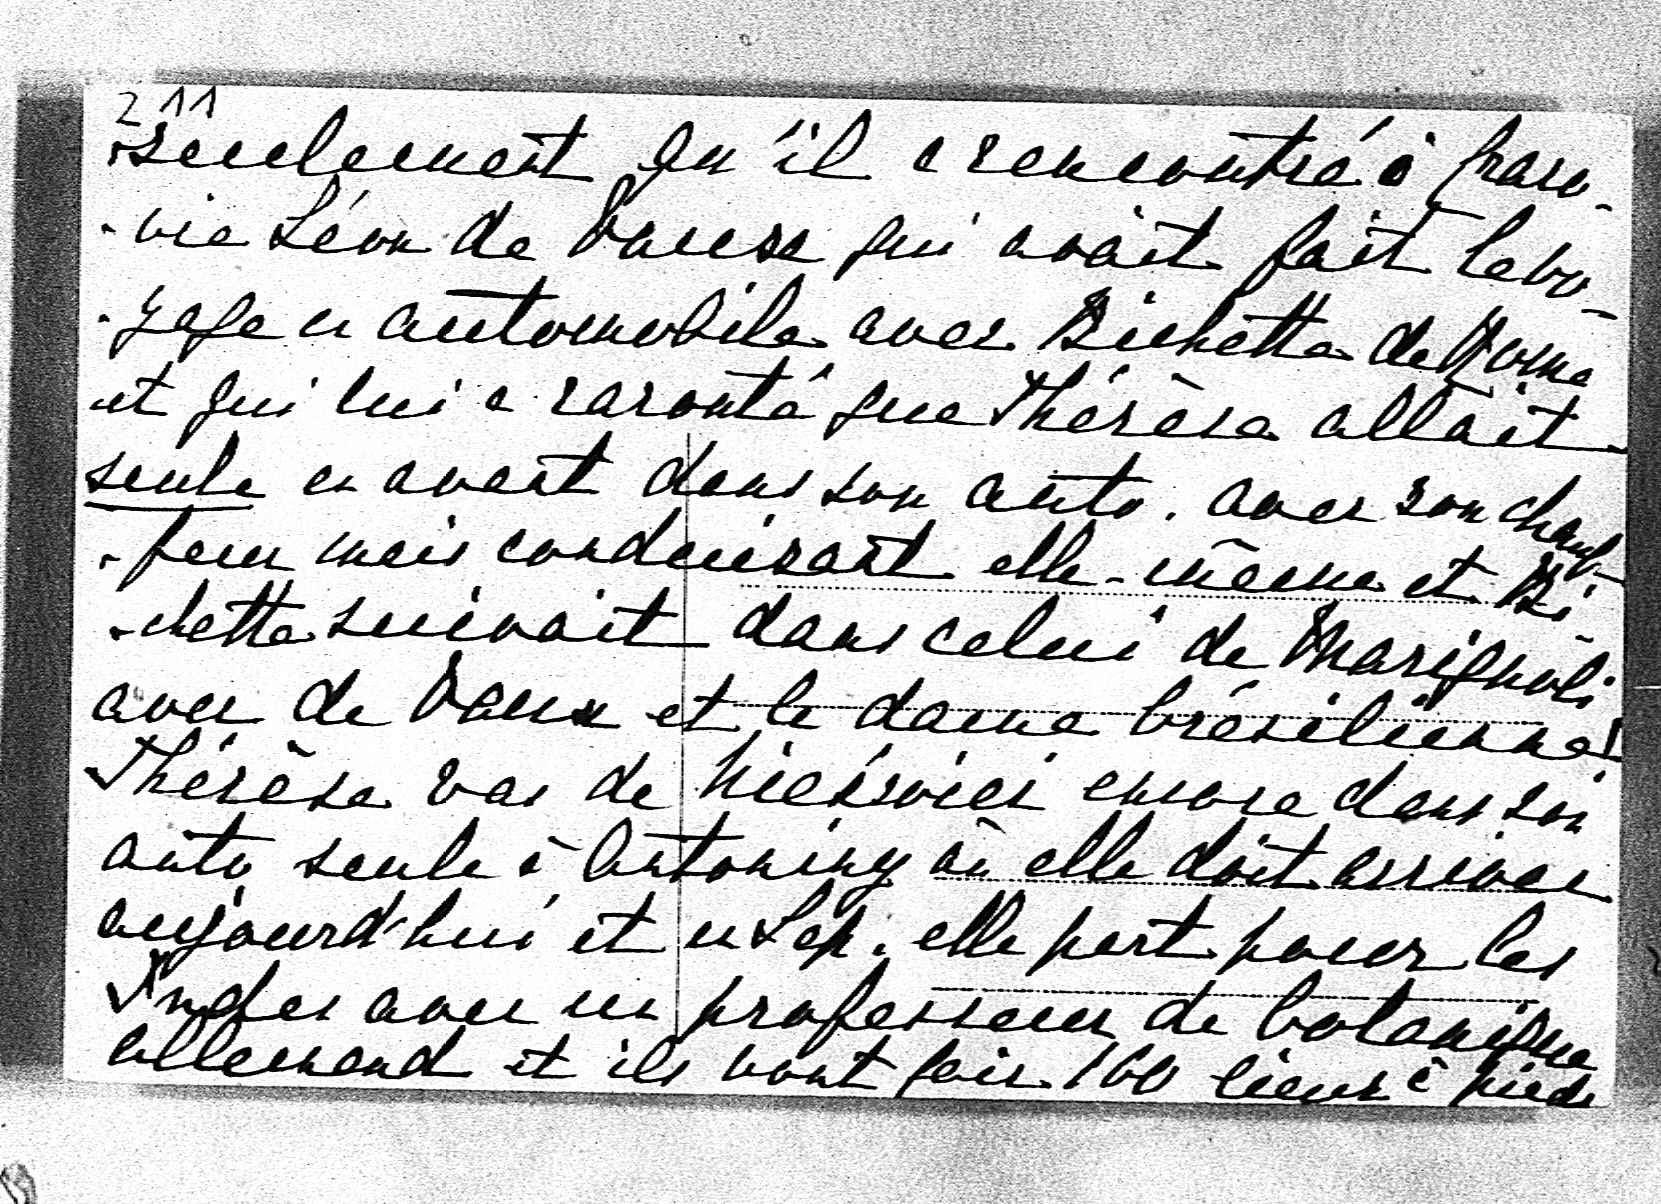 211
seulement qu'il a rencontré à Craco-
-vie Léon de Vaux qui avait fait le vo-
-yage en automobile avec Bichette de Rome
et qui lui a raconté que Thérèse allait
seule en avant dans son auto. avec son chauf-
-feur mais conduisant elle-même et Bi-
-chette suivait dans celui de Marignoli
avec de Vaux et la dame brésilienne!
Thérèse vas de encore dans son
auto seule à Antoniny où elle doit arriver
aujourd'hui et en Sep. elle part pour les
Indes avec un professeur de botanique
allemand et ils vont fair 160 lieus à pieds